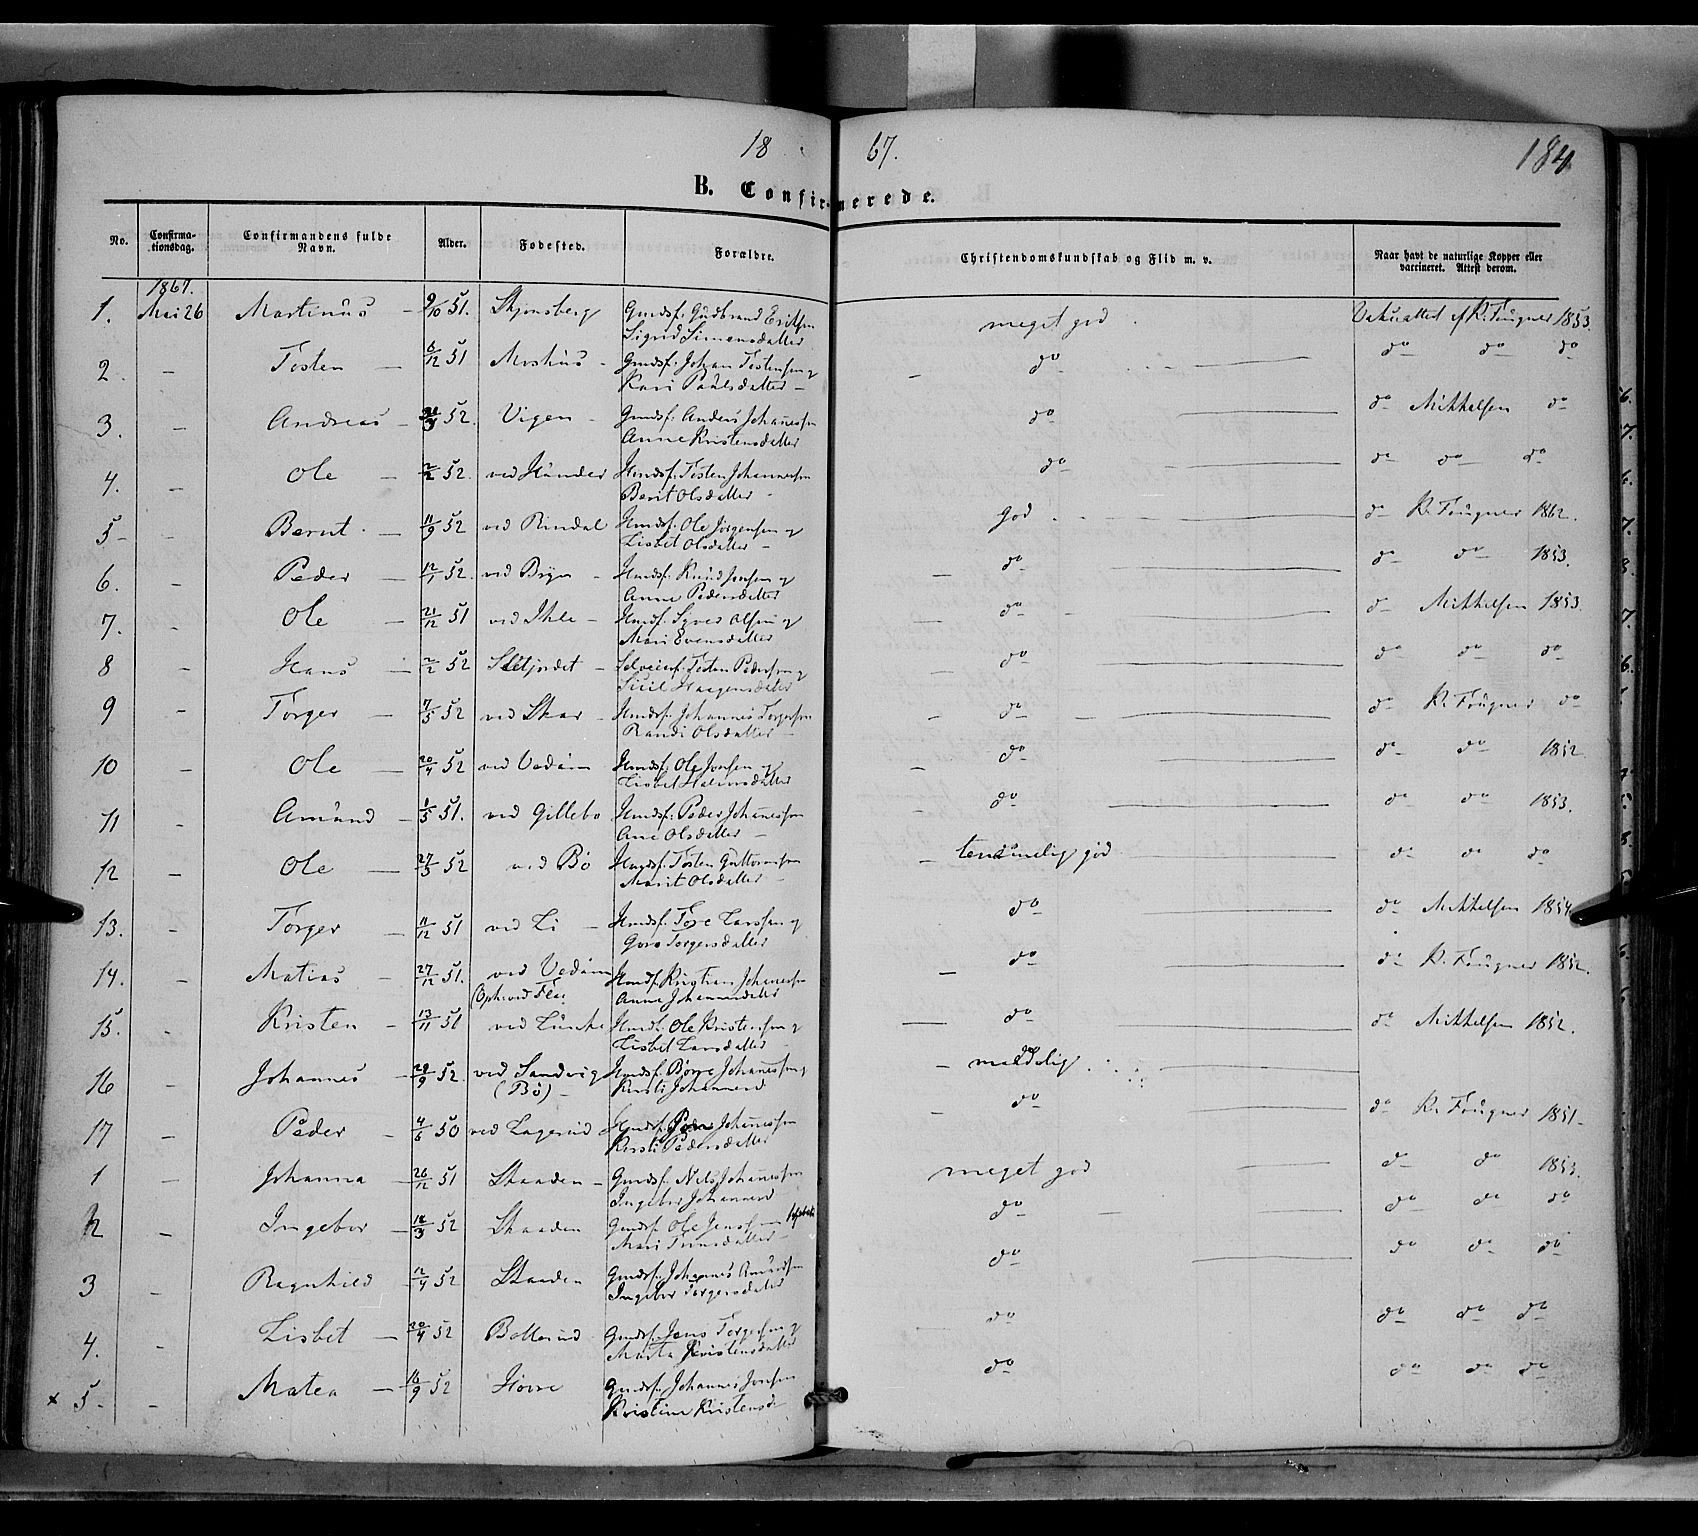 18 67.
184
B. Confirmerede.
No. Confirmationsdag. Confirmandens fulde Navn. Alder. Fødested. Forældre. Christendomskundskab og Flid m. v. Naar havt de naturlige Kopper eller vaccineret. Attest derom.
1867.
1. Mai 26 Martinus – 9/10 51. Skjønsberg Gmdsf. Gudbrand Eriksen meget god Vakcattest af R. Fougner 1853.
Sigrid Simensdatter
2. – Tosten – 6/12 51 Moshus – Gmdsf. Johan Tostensen og – do do do do
Kari Paulsdatter –
3. – Andreas – 52. Vigen – Gmdsf. Anders Johannessen do do Mikkelsen do
Anne Kristensdatter
4. – Ole – 2/2 52. ved Hunder Hmdsf. Tosten Johannessen do do do do
Berit Olsdatter –
5 – Bernt – 11/9 52 ved Rindal Hmdsf. Ole Jørgensen og god do R. Fougner 1862.
Lisbet Olsdatter –
6. – Peder – 12/1 52. ved Bryn – Hmdsf. Knud Jonsen og – do do do 1853.
Anne Pedersdatter
7. – Ole – 21/12 51 ved Ihle – Hmdsf. Syver Olsen og – do do Mikkelsen 1853.
Mari Evensdatter
8 – Hans – 2/2 52 Sletjordet – Selveierf. Tosten Pedersen og – do do do do
Siril Haagensdatter
9 – Torger – 7/5 52 ved Skar – Hmdsf. Johannes Torgersen – do do R. Fougner do
Randi Olsdatter –
10 – Ole – 20/4 52 ved Vedum Hmdsf. Ole Jonsen og – do do do 1852
Lisbet
11 – Amund – 1/5 51. ved Gillebo Hmdsf. Peder Johannessen – do do do 1853.
Ane Olsdatter –
12 – Ole – 27/5 52 ved Bø Hmdsf. Tosten Guttormsen – temmelig god do do do
Marit Olsdatter –
13. – Torger – 11/12 51 ved Li – Hmdsf. Tore Larssen og do do Mikkelsen 1854
Goro Torgersdatter
14. – Matias – 27/12 51. ved Vedum Hmdsf. Kristian Johannessen – do do R. Fougner 1852.
Anne Johannesdatter
15. – Kristen – 13/11 51 ved Lunke Hmdsf. Ole Kristensen og – do do Mikkelsen 1852.
Lisbet Larsdatter
16 – Johannes – 29/9 52. ved Sandvig Hmdsf. Børre Johannessen og – maadelig
(Bø) – Kersti Johannesd
17 – Peder – 4/6 50 ved Lagerud Hmdsf. Johannessen – do do R. Fougner 1851 –
Kersti Pedersdatter
1 – Johanna – 26/12 51 Skaaden – Gmdsf. Nils Johannessen meget god do do 1853.
Ingebor Johannesd
2 – Ingebor – 18/3 52 Skaaden Gmdsf. Ole Jenssen do do do do
Mari
3 – Ragnhild 12/4 52 Skaaden Gmdsf. Johannes Amundsen do do do do
Ingebor Torgersdatter
4. – Lisbet – 20/4 52 Bollerud Gmdsf. Jens Torgersen og do do do do
Marta Kristensdatter
x 5 – – Matea – 16/9 52 Hovre Gmdsf. Johannes Jonsen do do do do
Kristine Kristensd